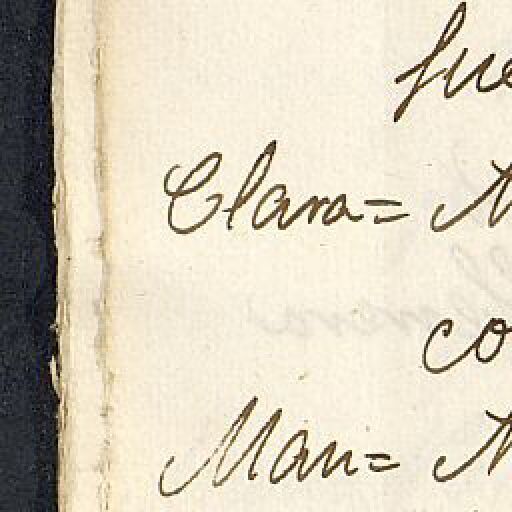 fue
Clara= N
co
Man= N